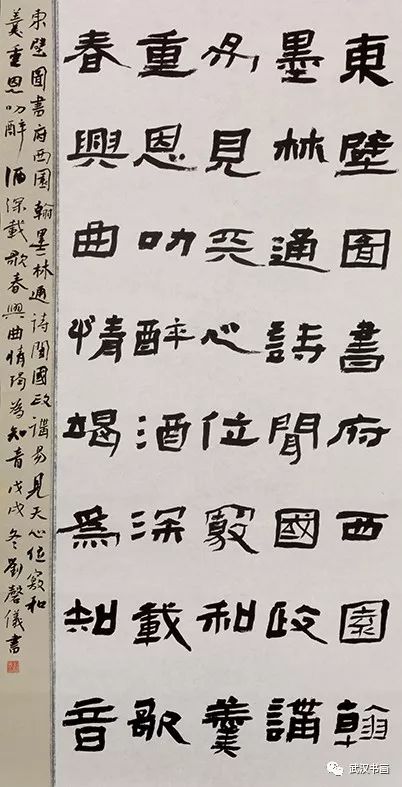 東壁圖書府西園翰
墨林通詩聞國政講
易見天心位竊和羹
重恩叨醉酒深載歌
春興曲情竭爲知音
東壁圖書府西園翰墨林通詩聞國政講易見天心位竊和
羹重恩叨醉酒深載歌春興曲情竭為知音戊戌冬劉儀書
武汉书画